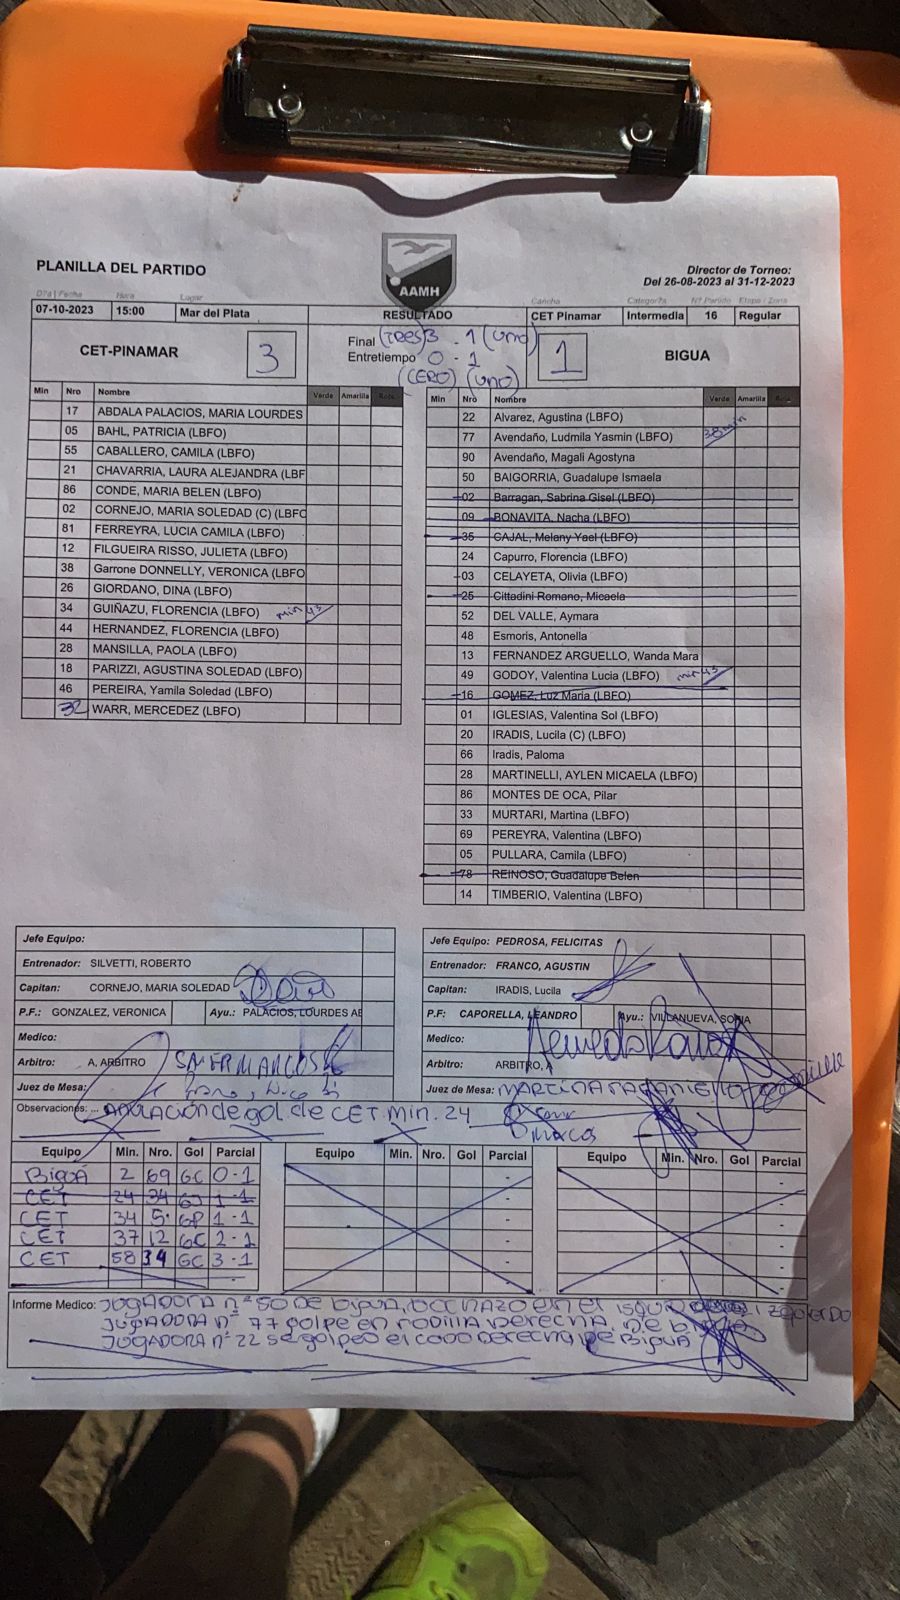 AAMH
PLANILLA DEL PARTIDO
Director de Torneo:
Del 26-08-2023 al 31-12-2023
Día | Fecha Hora Lugar Cancha Categor?a N? Partido Etapa / Zona
07-10-2023 15:00 Mar del Plata RESULTADO CET Pinamar Intermedia 16 Regular
CET-PINAMAR 3 Final (TRES) 3 - 1 (UNO) 1 BIGUA
Entretiempo 0 - 1
(CERO) (UNO)
Min Nro Nombre Verde Amarilla Roja
17 ABDALA PALACIOS, MARIA LOURDES
05 BAHL, PATRICIA (LBFO)
55 CABALLERO, CAMILA (LBFO)
21 CHAVARRIA, LAURA ALEJANDRA (LBF
86 CONDE, MARIA BELEN (LBFO)
02 CORNEJO, MARIA SOLEDAD (C) (LBFO
81 FERREYRA, LUCIA CAMILA (LBFO)
12 FILGUEIRA RISSO, JULIETA (LBFO)
38 Garrone DONNELLY, VERONICA (LBFO
26 GIORDANO, DINA (LBFO)
34 GUIÑAZU, FLORENCIA (LBFO) min 43
44 HERNANDEZ, FLORENCIA (LBFO)
28 MANSILLA, PAOLA (LBFO)
18 PARIZZI, AGUSTINA SOLEDAD (LBFO)
46 PEREIRA, Yamila Soledad (LBFO)
32 WARR, MERCEDEZ (LBFO)
Min Nro Nombre Verde Amarilla Roja
22 Alvarez, Agustina (LBFO)
77 Avendaño, Ludmila Yasmin (LBFO) 38 min
90 Avendaño, Magali Agostyna
50 BAIGORRIA, Guadalupe Ismaela
02 Barragan, Sabrina Gisel (LBFO)
09 BONAVITA, Nacha (LBFO)
35 CAJAL, Melany Yael (LBFO)
24 Capurro, Florencia (LBFO)
03 CELAYETA, Olivia (LBFO)
25 Cittadini Romano, Micaela
52 DEL VALLE, Aymara
48 Esmoris, Antonella
13 FERNANDEZ ARGUELLO, Wanda Mara
49 GODOY, Valentina Lucia (LBFO) min 43
16 GOMEZ, Luz Maria (LBFO)
01 IGLESIAS, Valentina Sol (LBFO)
20 IRADIS, Lucila (C) (LBFO)
66 Iradis, Paloma
28 MARTINELLI, AYLEN MICAELA (LBFO)
86 MONTES DE OCA, Pilar
33 MURTARI, Martina (LBFO)
69 PEREYRA, Valentina (LBFO)
05 PULLARA, Camila (LBFO)
78 REINOSO, Guadalupe Belen
14 TIMBERIO, Valentina (LBFO)
Jefe Equipo:
Entrenador: SILVETTI, ROBERTO
Capitan: CORNEJO, MARIA SOLEDAD
P.F.: GONZALEZ, VERONICA Ayu.: PALACIOS, LOURDES AB
Medico:
Arbitro: A, ARBITRO
Juez de Mesa:
Jefe Equipo: PEDROSA, FELICITAS
Entrenador: FRANCO, AGUSTIN
Capitan: IRADIS, Lucila
P.F: CAPORELLA, LEANDRO Ayu.: VILLANUEVA, SONIA
Medico:
Arbitro: ARBITRO, A
Juez de Mesa: MARTINA
Observaciones: ... ANULACIÓN de gol de CET. Min. 24
Equipo Min. Nro. Gol Parcial
BIGUÁ 2 69 GC 0-1
CET 24 34 GJ 1-1
CET 34 5 GP 1-1
CET 37 12 GC 2-1
CET 58 34 GC 3-1
Equipo Min. Nro. Gol Parcial
Equipo Min. Nro. Gol Parcial
Informe Medico: JUGADORA nº 50 DE BIGUA, BOCHAZO en el izquierdo
JUGADORA nº 77 golpe en rodilla derecha, DE BIGUA
JUGADORA nº 22 se golpeo el codo derecho, DE BIGUA